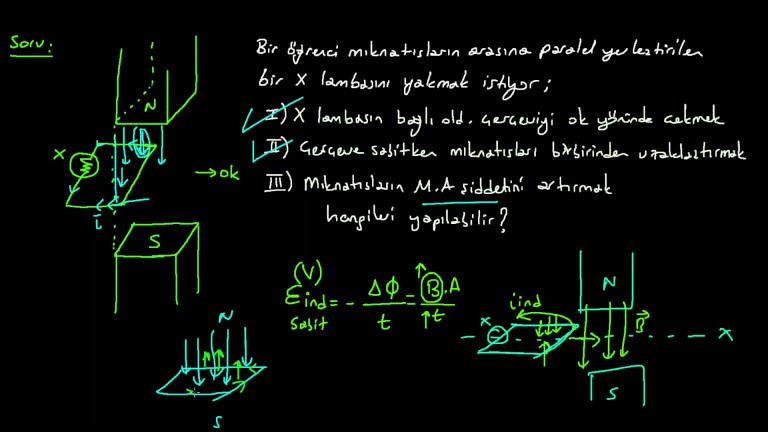 Soru:
Bir öğrenci mıknatısların arasına paralel yerleştirilen
bir X lambasını yakmak istiyor;
I) X lambasın bağlı old. çerçeveyi ok yönünde çekmek
II) Çerçeve sabitken mıknatısları birbirinden uzaklaştırmak
III) Mıknatısların M.A şiddetini artırmak
hangileri yapılabilir?
N
X
→ ok
i
S
(V)
εind = - ΔΦ/t = B.A/t
sabit
N
S
N
iind
X
B
X
S